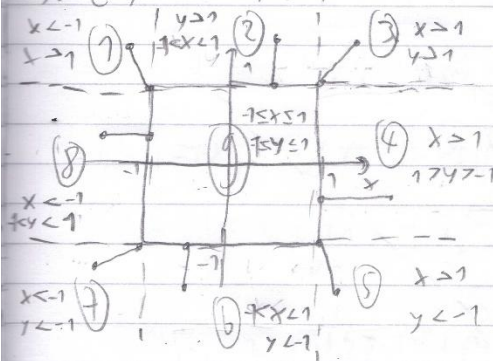 x < -1
x > 1
①
y > 1
-1 < x < 1
②
③
x > 1
y > 1
1
-1 ≤ x ≤ 1
-1 ≤ y ≤ 1
⑨
④
x > 1
1 > y > -1
⑧
-1
1
x
x < -1
-1 < y < 1
-1
x < -1
y < -1
⑦
⑥
-1 < x < 1
y < -1
⑤
x > 1
y < -1